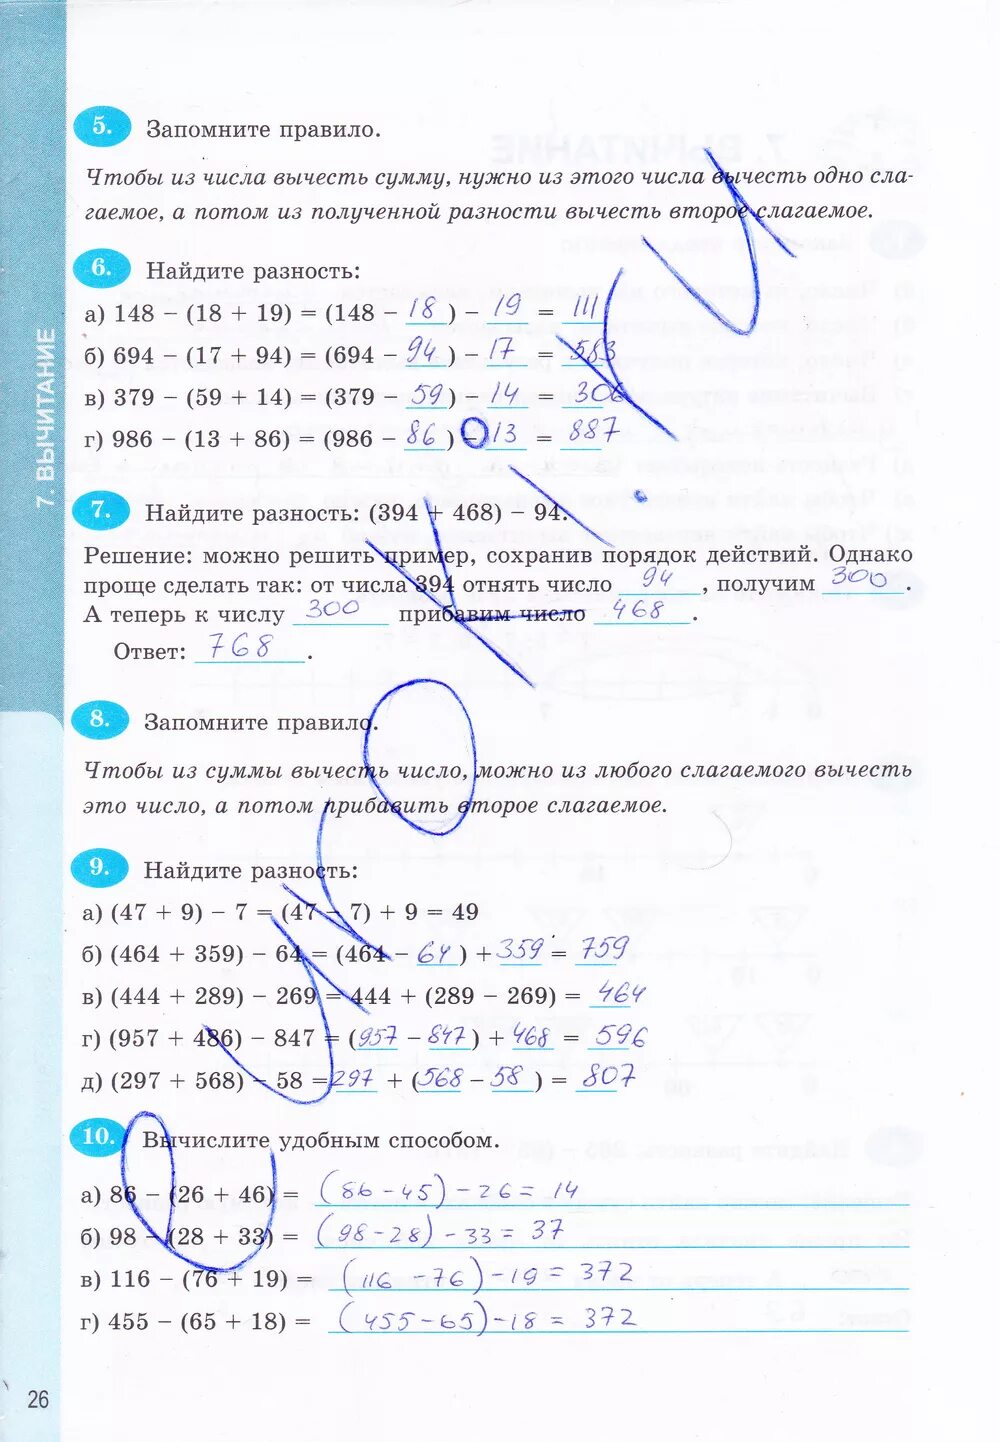 5. Запомните правило.
Чтобы из числа вычесть сумму, нужно из этого числа вычесть одно сла-
гаемое, а потом из полученной разности вычесть второе слагаемое.
6. Найдите разность:
а) 148 − (18 + 19) = (148 − 18) − 19 = 111
б) 694 − (17 + 94) = (694 − 94) − 17 = 583
в) 379 − (59 + 14) = (379 − 59) − 14 = 306
г) 986 − (13 + 86) = (986 − 86) − 13 = 887
7. Найдите разность: (394 + 468) − 94.
Решение: можно решить пример, сохранив порядок действий. Однако
проще сделать так: от числа 394 отнять число 94, получим 300.
А теперь к числу 300 прибавим число 468.
Ответ: 768.
8. Запомните правило.
Чтобы из суммы вычесть число, можно из любого слагаемого вычесть
это число, а потом прибавить второе слагаемое.
9. Найдите разность:
а) (47 + 9) − 7 = (47 − 7) + 9 = 49
б) (464 + 359) − 64 = (464 − 64) + 359 = 759
в) (444 + 289) − 269 = 444 + (289 − 269) = 464
г) (957 + 486) − 847 = (957 − 847) + 468 = 596
д) (297 + 568) − 58 = 297 + (568 − 58) = 807
10. Вычислите удобным способом.
а) 86 − (26 + 46) = (86 − 45) − 26 = 14
б) 98 − (28 + 33) = (98 − 28) − 33 = 37
в) 116 − (76 + 19) = (116 − 76) − 19 = 372
г) 455 − (65 + 18) = (455 − 65) − 18 = 372
7. ВЫЧИТАНИЕ
26